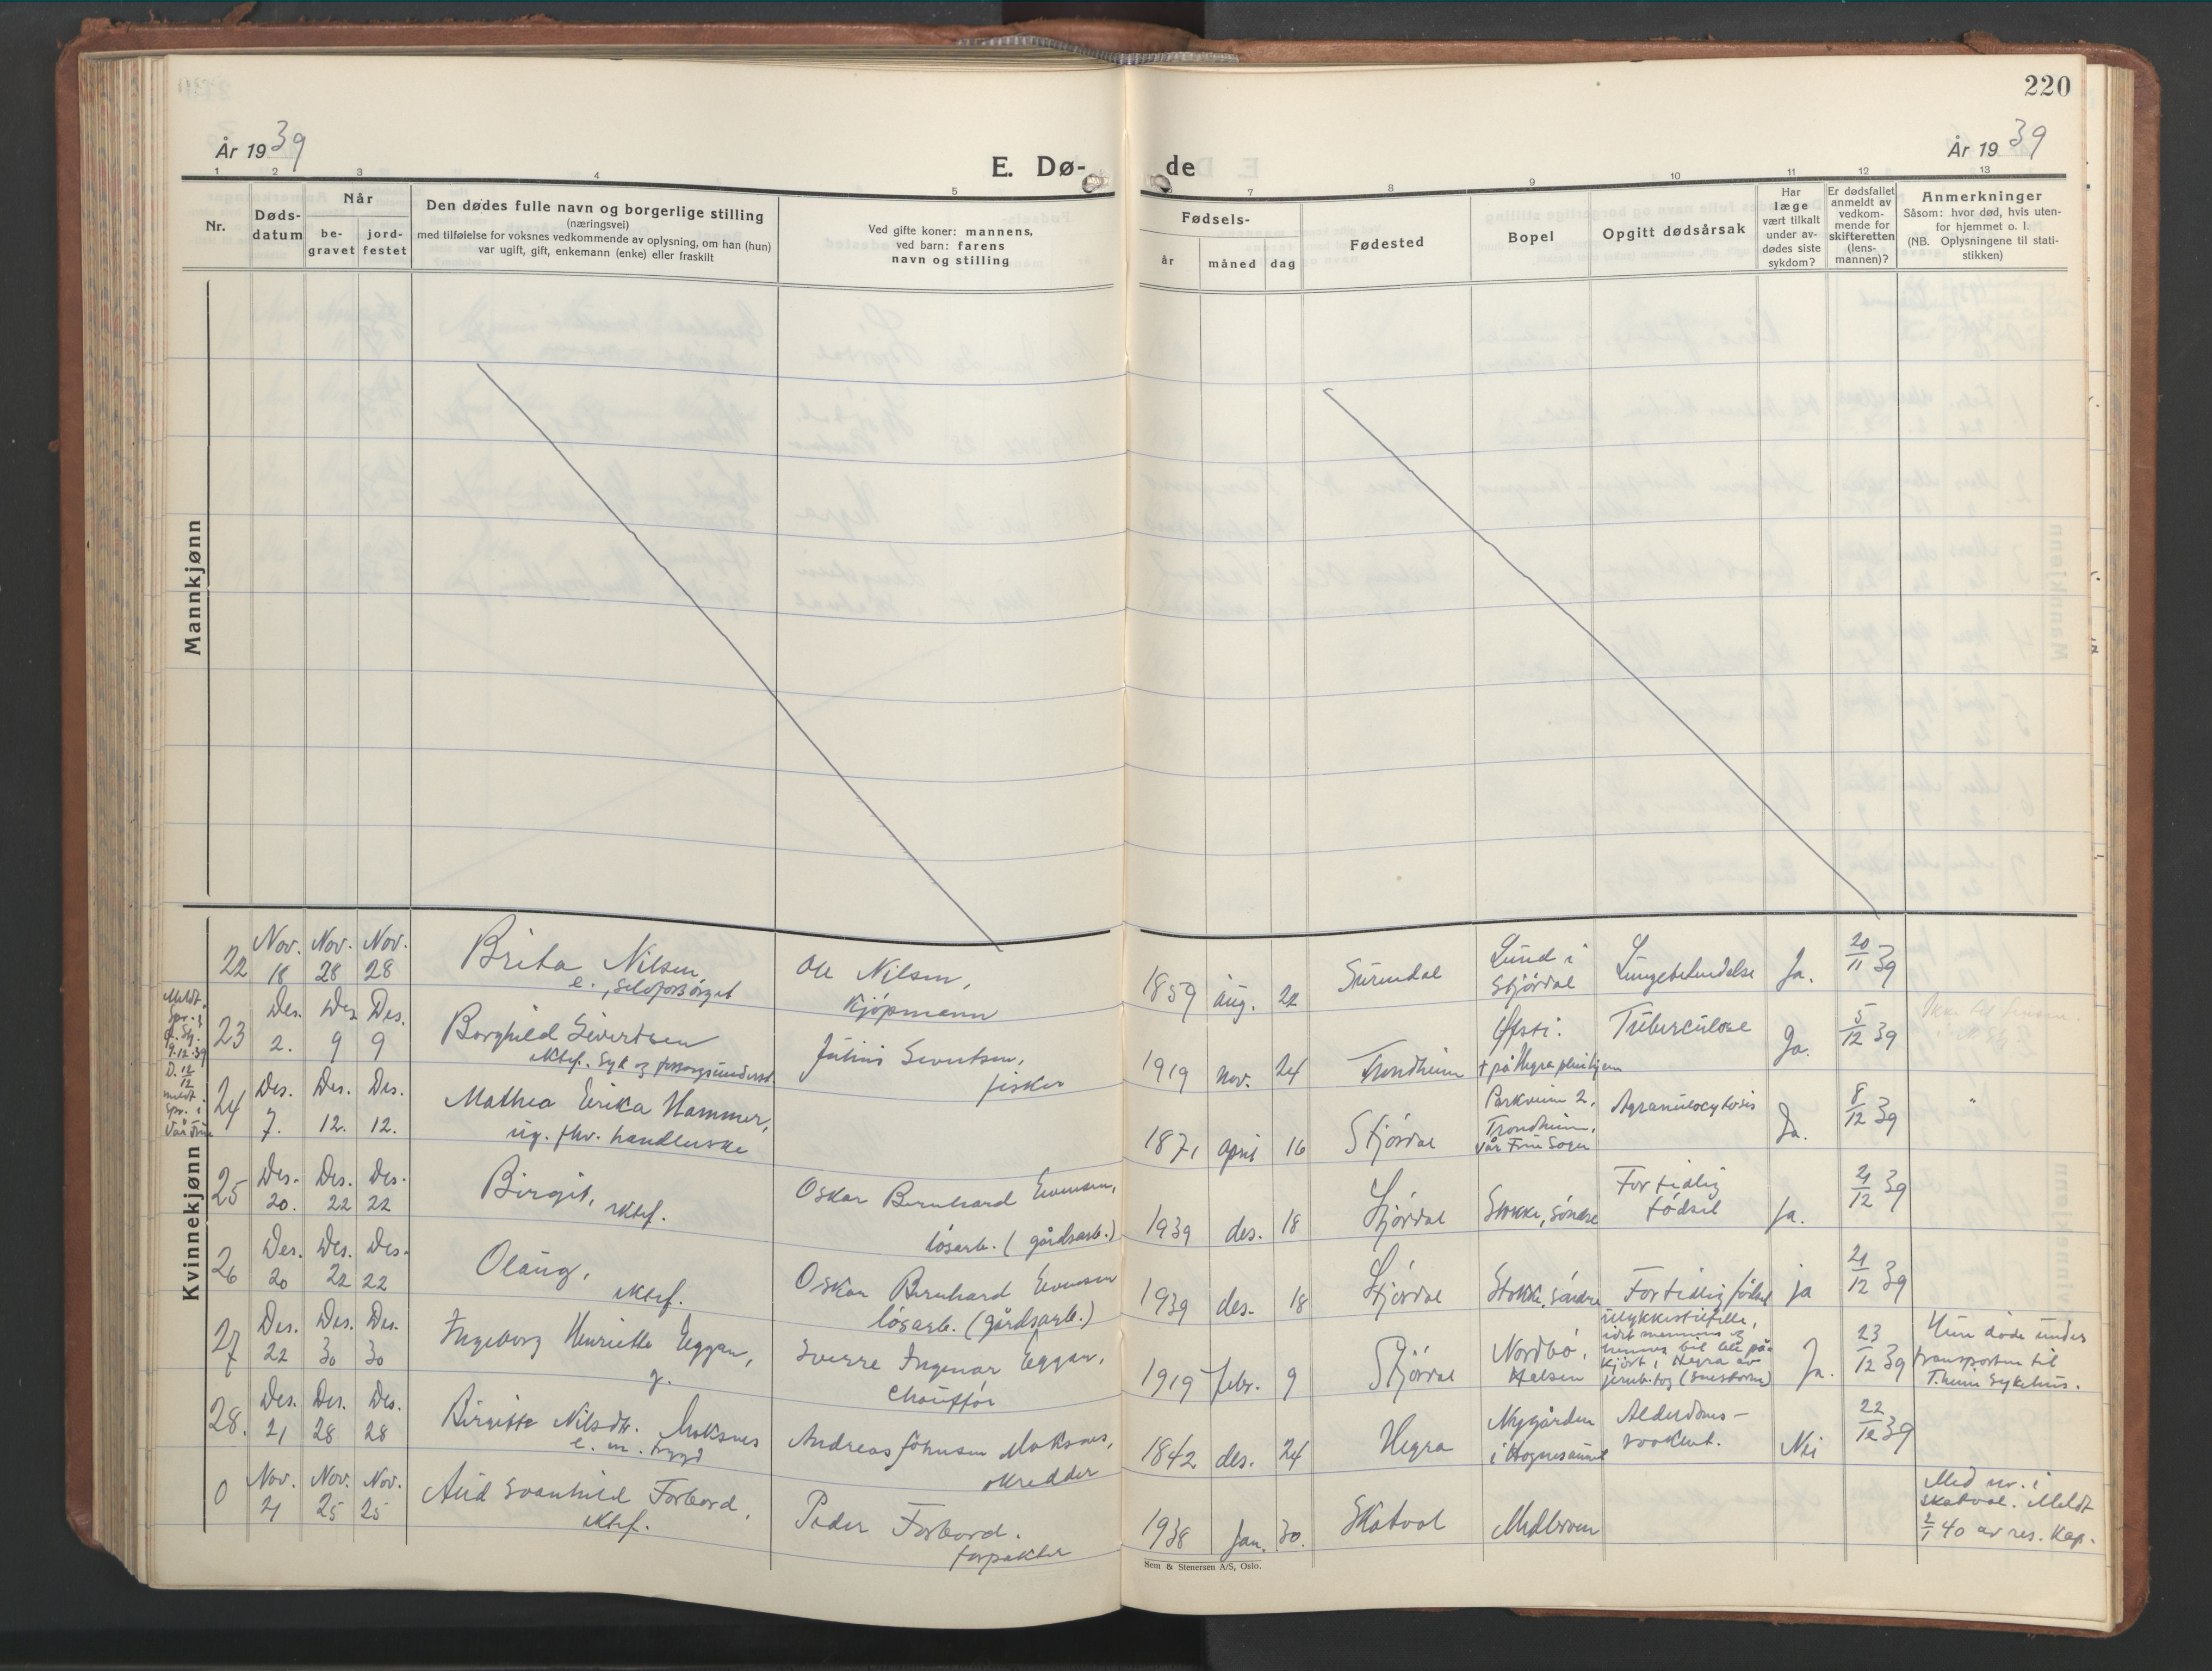 220
År 1939
E. Dø-
de
År 1939
1 2 3 4 5 6 7 8 9 10 11 12 13
Nr.
Døds-
datum
Når
be-
gravet
jord-
festet
Den dødes fulle navn og borgerlige stilling
(næringsvei)
med tilføielse for voksnes vedkommende av oplysning, om han (hun)
var ugift, gift, enkemann (enke) eller fraskilt
Ved gifte koner: mannens,
ved barn: farens
navn og stilling
Fødsels-
år måned dag
Fødested
Bopel
Opgitt dødsårsak
Har
læge
vært tilkalt
under av-
dødes siste
sykdom?
Er dødsfallet
anmeldt av
vedkom-
mende for
skifteretten
(lens-
mannen)?
Anmerkninger
Såsom: hvor død, hvis uten-
for hjemmet o. l.
(NB. Oplysningene til stati-
stikken)
Mannkjønn
Kvinnekjønn
22 Nov. 18 Nov. 28 Nov. 28
Brita Nilsen,
e., selvforsørget
Ole Nilsen,
Kjøpmann
1859 aug. 22 Surendal
Lund i
Stjørdal
Lungebetendelse Ja. 20/11 39
Meldt
9.12.39
23 Des. 2. Des 9 Des. 9
Borghild Sivertsen
Julius Sivertsen,
fisker
1919 nov. 24 Trondheim
Øfsti.
+ på Hegra pleiehjem
Tuberculose Ja. 5/12 39
24 Des. 7. Des. 12. Des. 12.
Mathea Erika Hammer,
ug. fhv. handlerske
1871 april 16 Stjørdal
Parkveien 2,
Trondheim,
Vår Frue Sogn
Agranulocytosis Ja. 8/12 39
25 Des. 20. Des. 22 Des. 22
Birgit,
Oskar Bernhard Evensen,
løsarb. (gårdsarb.)
1939 des. 18 Stjørdal Stokke, søndre
For tidlig
fødsel
Ja. 21/12 39
26 Des. 20 Des. 22 Des. 22
Olaug,
Oskar Bernhard Evensen
løsarb. (gårdsarb.)
1939 des. 18 Stjørdal Stokke, søndre For tidlig fødsel ja 21/12 39
27 Des. 22 Des. 30 Des. 30
Ingeborg Henriette Eggan,
g.
Sverre Ingemar Eggan,
Chauffør
1919 febr. 9 Stjørdal
Nordbø,
Halsen
ulykkestilfelle,
idet mannens og
hennes bil ble på-
kjørt i Hegra av
jernb.tog (Snestorm)
Ja. 23/12 39
Hun døde under
transporten til
T.heim Sykehus.
28. Des. 21 Des. 28 Des. 28
Birgitte Nilsdtr. Moksnes
e. m. trygd
Andreas Johnsen Moksnes,
skredder
1842 des. 24 Hegra
Nygården
Alderdoms-
svakhet.
Nei 22/12 39
0 Nov. 21 Nov. 25 Nov. 25
Aud Svanhild Forbord,
Peder Forbord.
forpakter
1938 Jan. 30. Skatval
Med nr. i
Skatval. Meldt
2/1 40 av res. Kap.
Sem & Stenersen A/S, Oslo.